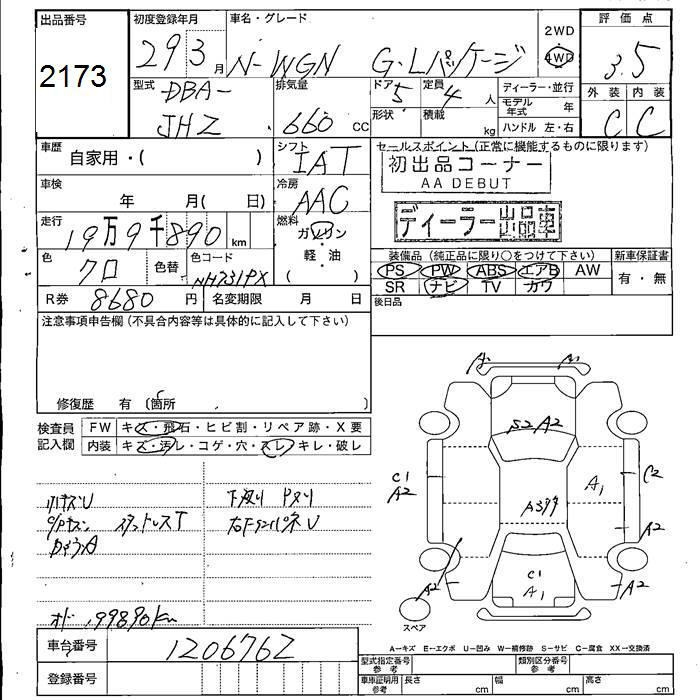 出品番号 初度登録年月 車名・グレード 2WD 評価点
2173 29 3月 N-WGN G・Lパッケージ 4WD 3.5
型式 DBA- 排気量 ドア 5 定員 4人 ディーラー・並行 外装 内装
JHZ 660 cc 形状 積載 kg モデル年式 年 C C
ハンドル 左・右
車歴 シフト セールスポイント(正常に機能するものに限ります)
自家用・( ) IAT 初出品コーナー
AA DEBUT
車検 冷房
年 月( 日) AAC
ディーラー出品車
走行 燃料
19万9千890 km ガソリン
軽・油
( )
装備品(純正品に限り○をつけて下さい) 新車保証書
色 クロ 色替 色コード NH731PX PS PW ABS エアB AW 有・無
SR ナビ TV カワ
R券 8680 円 名変期限 月 日 後日品
注意事項申告欄(不具合内容等は具体的に記入して下さい)
修復歴 有(箇所 )
検査員 FW キズ・飛石・ヒビ割・リペア跡・X要
記入欄 内装 キズ・汚レ・コゲ・穴・スレ・キレ・破レ
A A
S2 A2
C1 A2 A1 C2
A3
A2
C1
A2 A1 A2
スペア
下廻り
スタッドレスT
オド 199890km
A−キズ E−エクボ U−凹み W−補修跡 S−サビ C−腐食 XX−交換済
車台番号 1206762 型式指定番号 参考 類別区分番号 参考
登録番号 車庫証明用 参考 長さ cm 幅 cm 高さ cm